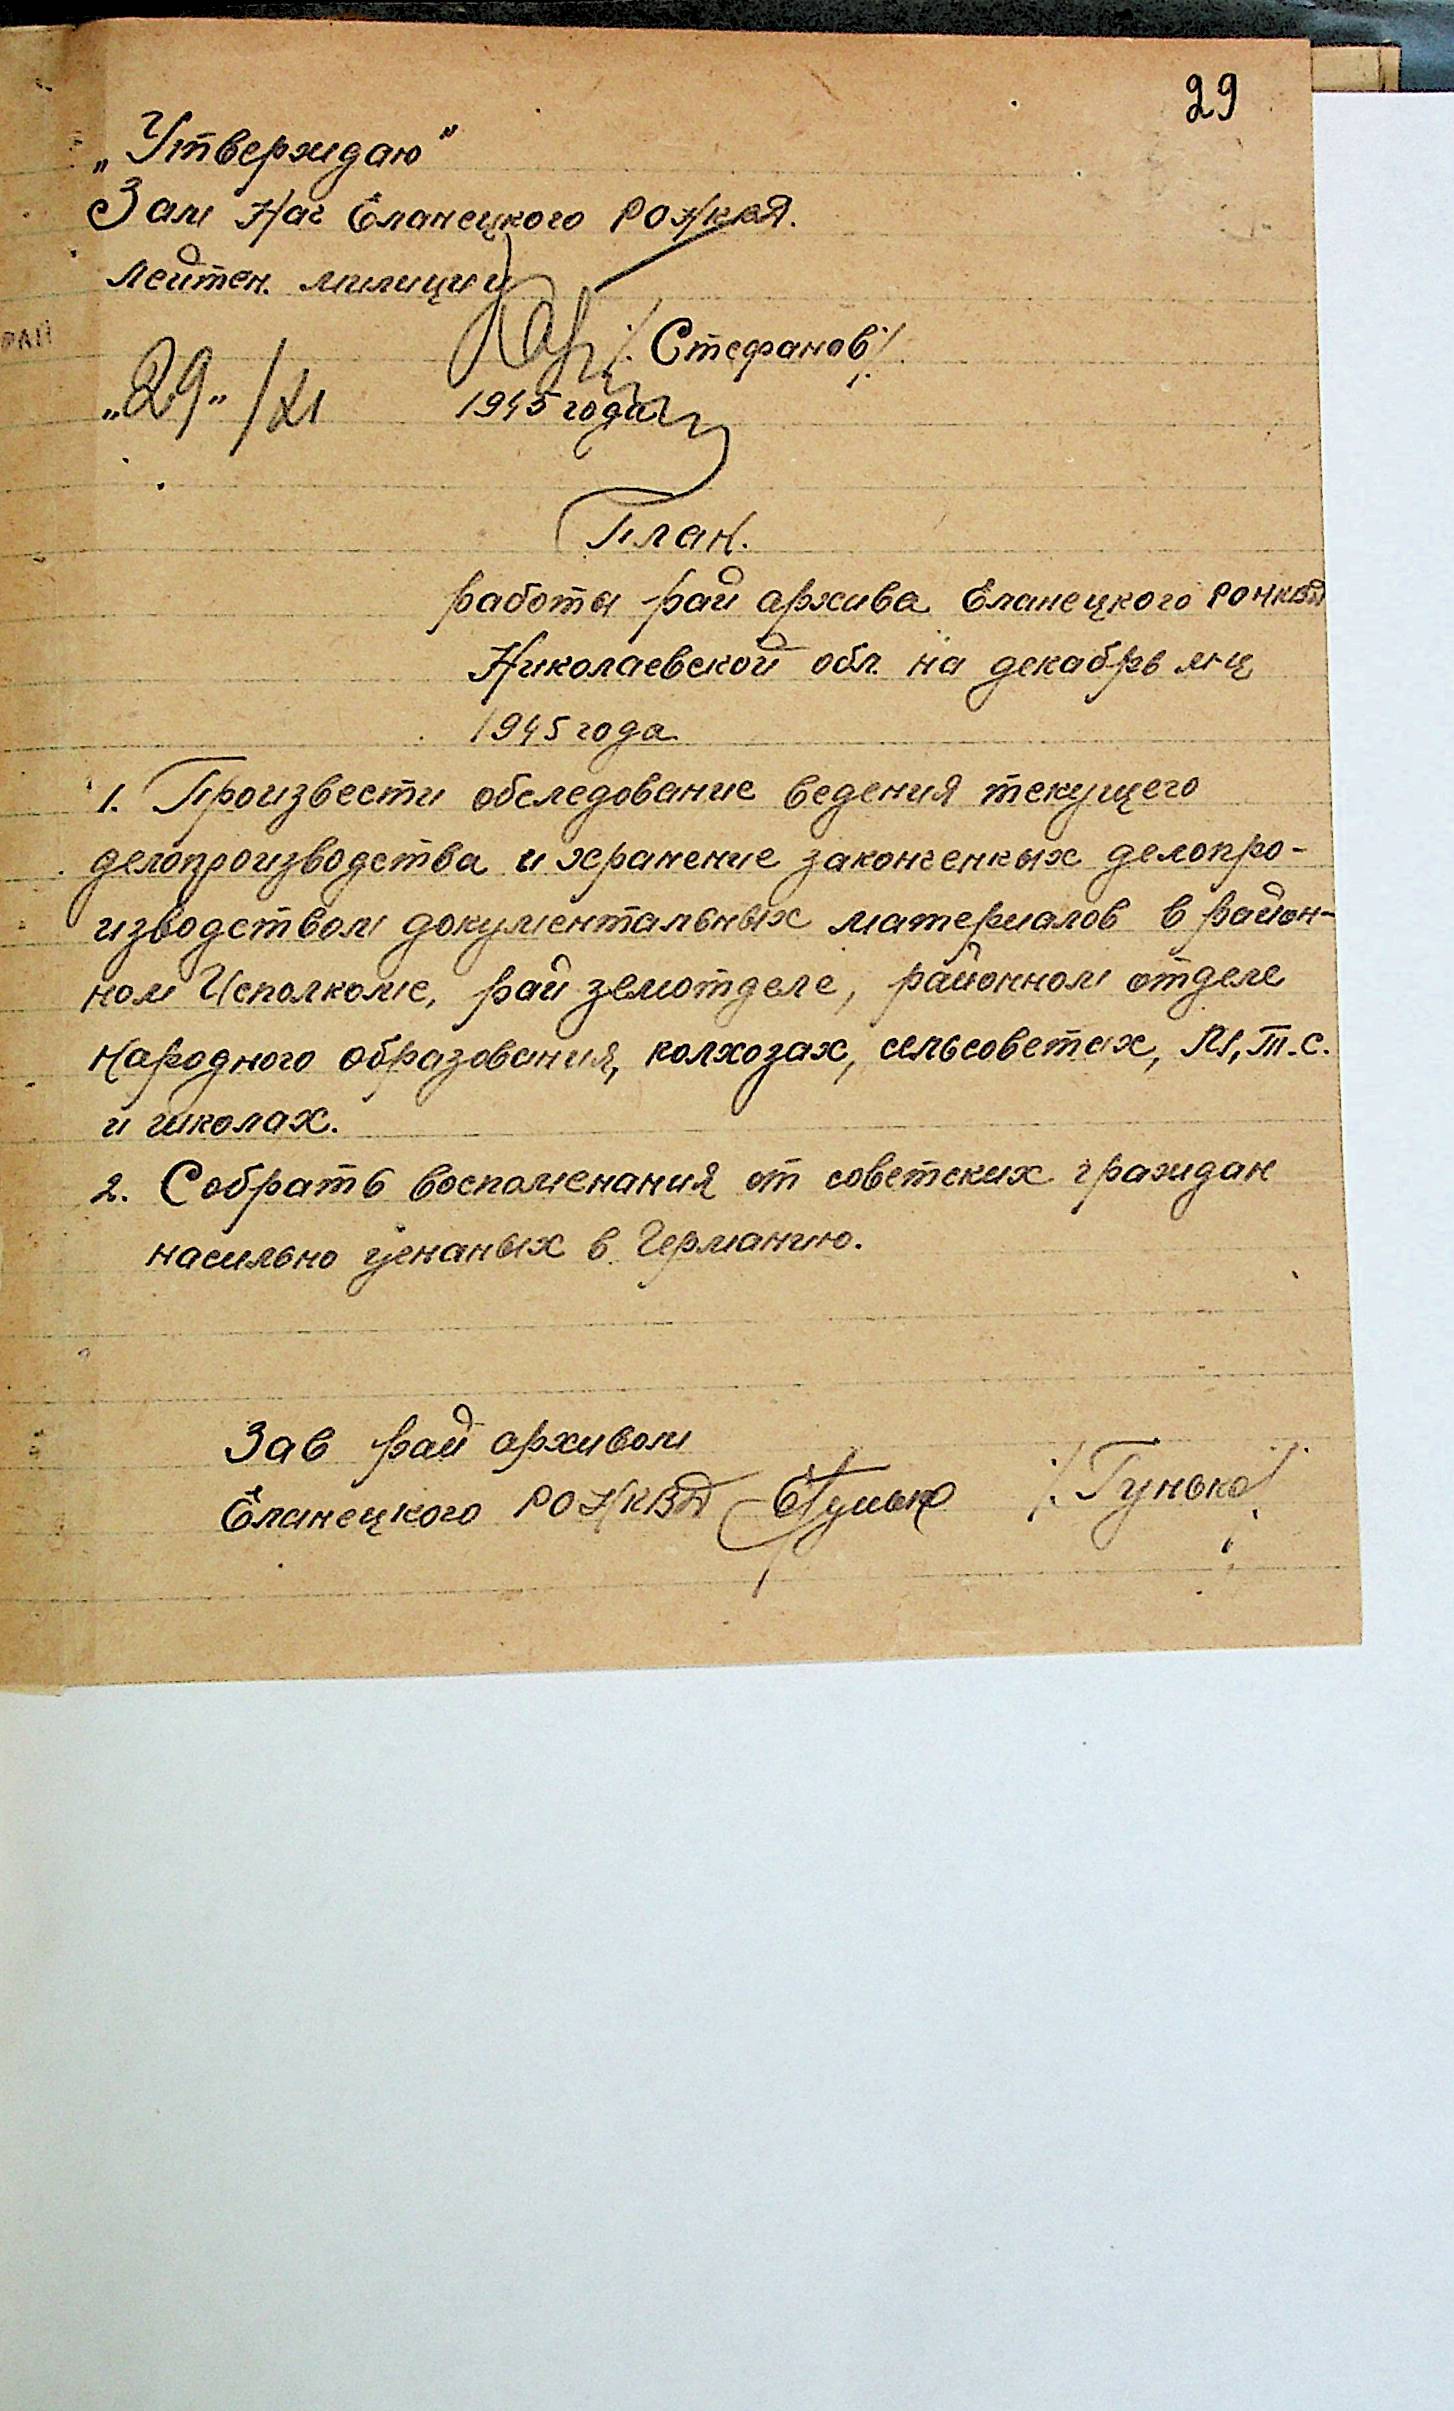 29
„Утверждаю"
Зам Нач Еланецкого РОНКВД.
Лейтен. милиции
/Стефанов/
„29" /XI 1945 года
План.
работы рай архива Еланецкого РОНКВД
Николаевской обл. на декабрь м-ц
1945 года
1. Произвести обследование ведения текущего
делопроизводства и хранение законченных делопро-
изводством документальных материалов в район-
ном Исполкоме, рай земотделе, районном отделе
Народного образования, колхозах, сельсоветах, М.Т.С.
и школах.
2. Собрать воспоменания от советских граждан
насильно угнаных в Германию.
Зав рай архивом
Еланецкого РОНКВД Гунько /Гунько/